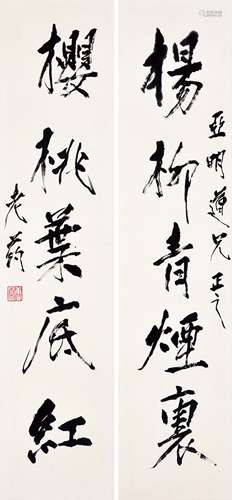 亞明道兄正之
楊柳青煙裏
櫻桃葉底紅
老蒟